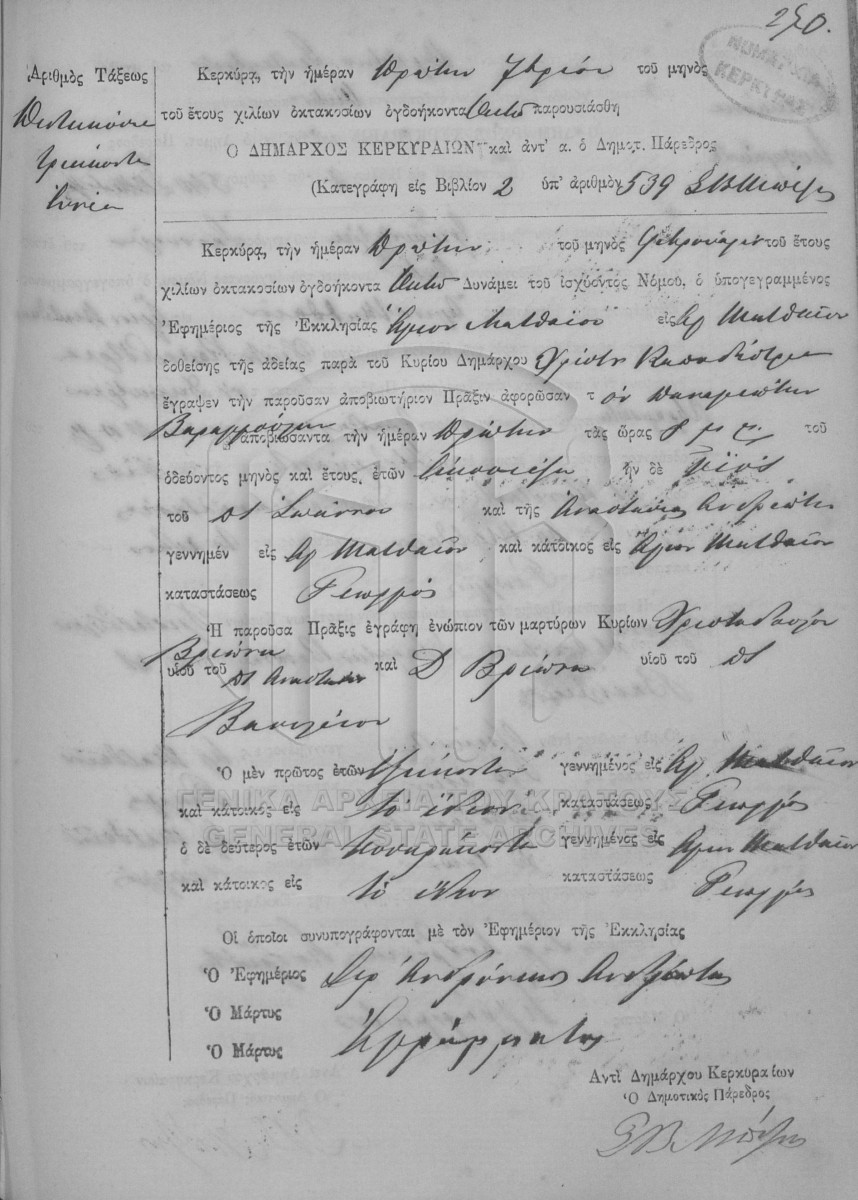 250.
ΝΟΜΑΡΧΙΑ ΚΕΡΚΥΡΑΣ
Ἀριθμὸς Τάξεως
Πεντακόσια
τριάκοντα
ἐννέα
Κερκύρᾳ, τὴν ἡμέραν πρώτην τοῦ μηνὸς
τοῦ ἔτους χιλίων ὀκτακοσίων ὀγδοήκοντα ὀκτὼ παρουσιάσθη
Ὁ ΔΗΜΑΡΧΟΣ ΚΕΡΚΥΡΑΙΩΝ καὶ ἀντ' α. ὁ Δημοτ. Πάρεδρος
(Κατεγράφη εἰς Βιβλίον 2 ὑπ' ἀριθμὸν 539
Κερκύρᾳ, τὴν ἡμέραν πρώτην τοῦ μηνὸς τοῦ ἔτους
χιλίων ὀκτακοσίων ὀγδοήκοντα ὀκτὼ Δυνάμει τοῦ ἰσχύοντος Νόμου, ὁ ὑπογεγραμμένος
Ἐφημέριος τῆς Ἐκκλησίας Ἁγίου Ματθαίου εἰς Ἁγ Ματθαῖον
δοθείσης τῆς ἀδείας παρὰ τοῦ Κυρίου Δημάρχου Χρίστου Καποδίστρια
ἔγραψεν τὴν παροῦσαν ἀποβιωτήριον Πρᾶξιν ἀφορῶσαν τ ὸν Παναγιώτην
ἀποβιώσαντα τὴν ἡμέραν πρώτην τὰς ὥρας τοῦ
ὁδεύοντος μηνὸς καὶ ἔτους, ἐτῶν εἰκοσιέξι ἦν δὲ υἱὸς
τοῦ Ἰωάννου καὶ τῆς Ἀναστασίας Ἀνδριώτη
γεννημέν εἰς Ἁγ Ματθαῖον καὶ κάτοικος εἰς Ἅγιον Ματθαῖον
καταστάσεως Γεωργός
Ἡ παροῦσα Πρᾶξις ἐγράφη ἐνώπιον τῶν μαρτύρων Κυρίων Χριστοδούλου
Βριώνη
υἱοῦ τοῦ καὶ Δ Βριώνη υἱοῦ τοῦ
Βασιλείου
Ὁ μὲν πρῶτος ἐτῶν ἑξήκοντα γεννημένος εἰς Ἁγ Ματθαῖον
καὶ κάτοικος εἰς τὸ ἴδιον καταστάσεως Γεωργός
ὁ δὲ δεύτερος ἐτῶν γεννημένος εἰς Ἅγιον Ματθαῖον
καὶ κάτοικος εἰς τὸ ἴδιον καταστάσεως Γεωργός
ΓΕΝΙΚΑ ΑΡΧΕΙΑ ΤΟΥ ΚΡΑΤΟΥΣ
GENERAL STATE ARCHIVES
Οἱ ὁποῖοι συνυπογράφονται μὲ τὸν Ἐφημέριον τῆς Ἐκκλησίας
Ὁ Ἐφημέριος Ἀνδρόνικος
Ὁ Μάρτυς
Ὁ Μάρτυς Ἀγράμματοι
Ἀντὶ Δημάρχου Κερκυραίων
Ὁ Δημοτικὸς Πάρεδρος